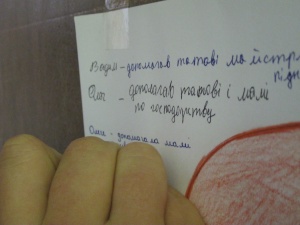 Вадим - допомагав татові майстр
підн
Олег - допомагав татові і мамі
по господарству
Олеся - допомагала мамі